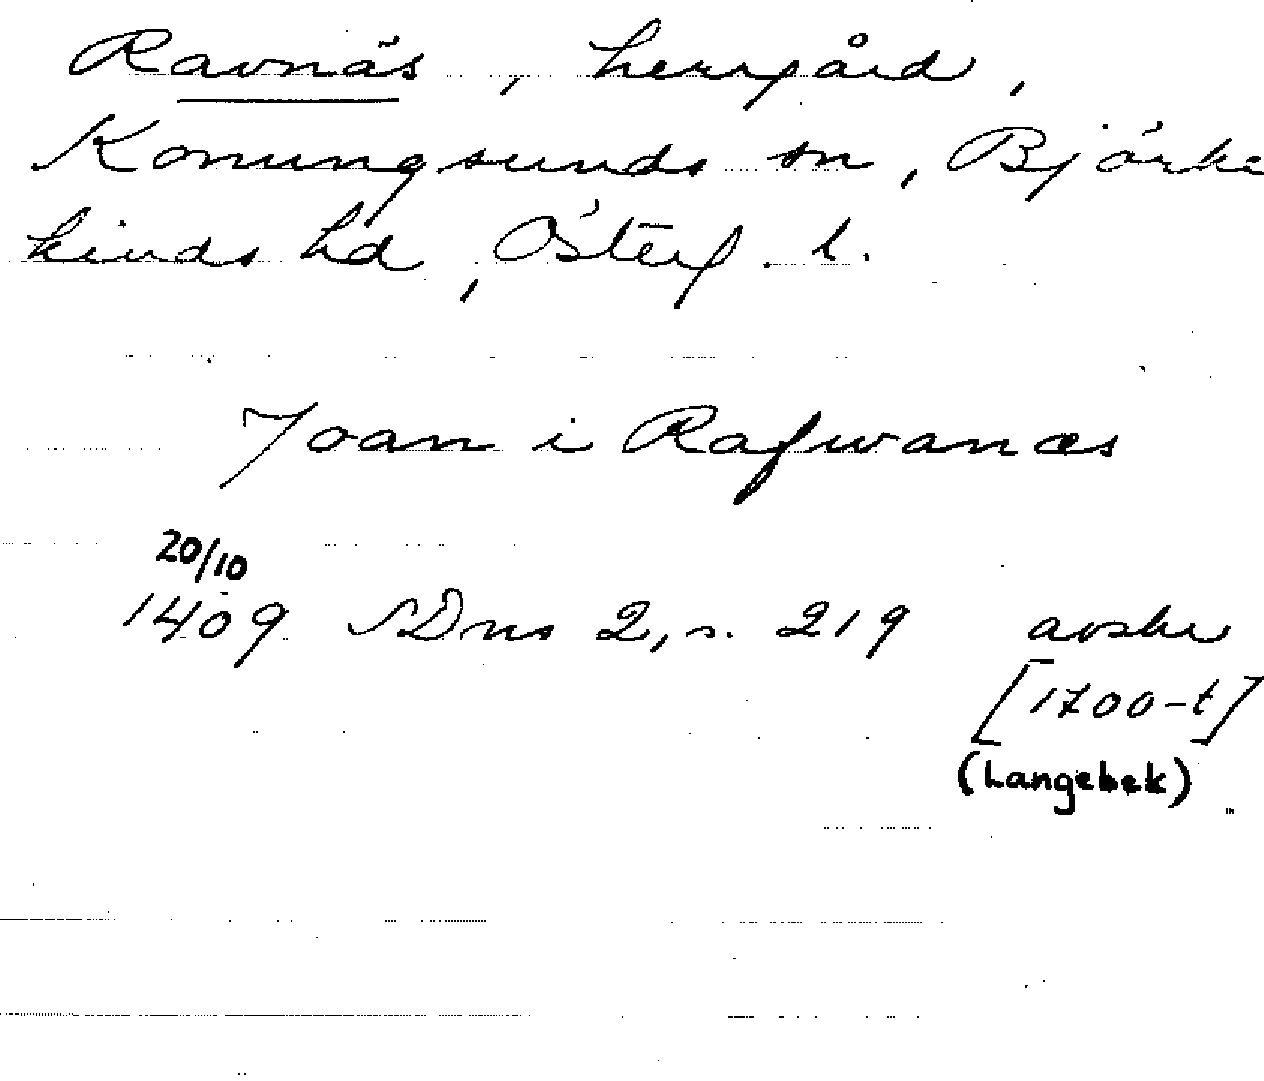 Ravnäs, herrgård,
Konungsunds sn, Björke
kinds hd, Österg. l.
Joan i Rafwanæs
20/10
1409 SDns 2, s. 219 avskr
[1700-t]
(Langebek)